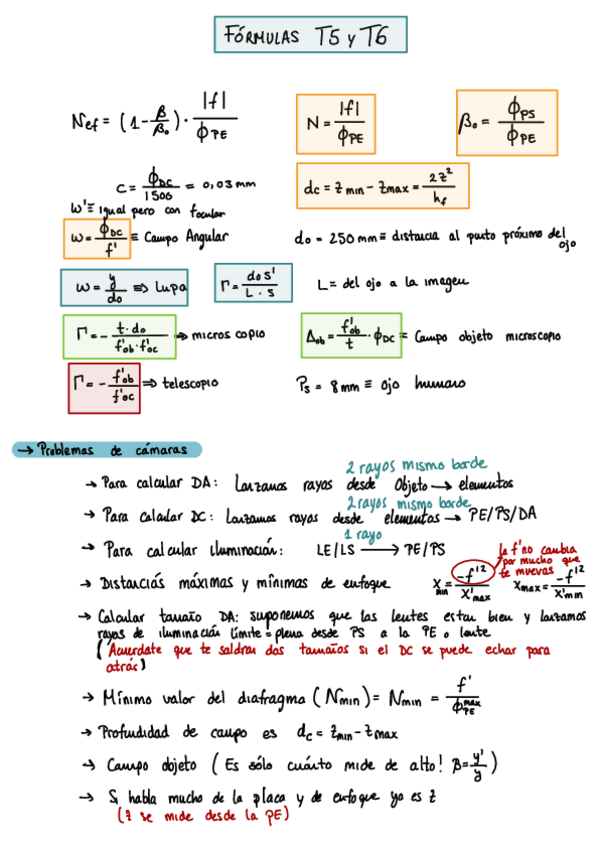 FÓRMULAS T5 y T6
Nef = (1 - β/β₀) · |f|/ϕPE
N = |f|/ϕPE
β₀ = ϕPS/ϕPE
C = ϕDC/1500 = 0,03 mm
dc = Zmin - Zmax = 2z²/hf
W' ≡ igual pero con f ocular
W = ϕDC/f' ≡ Campo Angular
do = 250 mm ≡ distancia al punto próximo del ojo
W = y/do ⇒ Lupa
Γ = do s'/L · s
L = del ojo a la imagen
Γ = - t · do/f'ob · f'oc ⇒ microscopio
Δob = f'ob/t · ϕDC ≡ Campo objeto microscopio
Γ = - f'ob/f'oc ⇒ telescopio
Ps = 8 mm ≡ ojo humano
→ Problemas de cámaras
2 rayos mismo borde
→ Para calcular DA: Lanzamos rayos desde Objeto → elementos
2 rayos mismo borde
→ Para calcular DC: Lanzamos rayos desde elementos → PE/PS/DA
1 rayo
→ Para calcular iluminación: LE/LS → PE/PS
la f' no cambia por mucho que te muevas
→ Distancias máximas y mínimas de enfoque Xmin = -f'²/X'max Xmax = -f'²/X'min
→ Calcular tamaño DA: suponemos que las lentes estan bien y lanzamos
rayos de iluminación límite = plena desde PS a la PE o lente
(Acuerdate que te saldran dos tamaños si el DC se puede echar para
atrás)
→ Mínimo valor del diafragma (Nmin) = Nmin = f'/ϕPE max
→ Profundidad de campo es dc = Zmin - Zmax
→ Campo objeto (Es sólo cuánto mide de alto! β = y'/y)
→ Si habla mucho de la placa y de enfoque ya es z
(z se mide desde la PE)